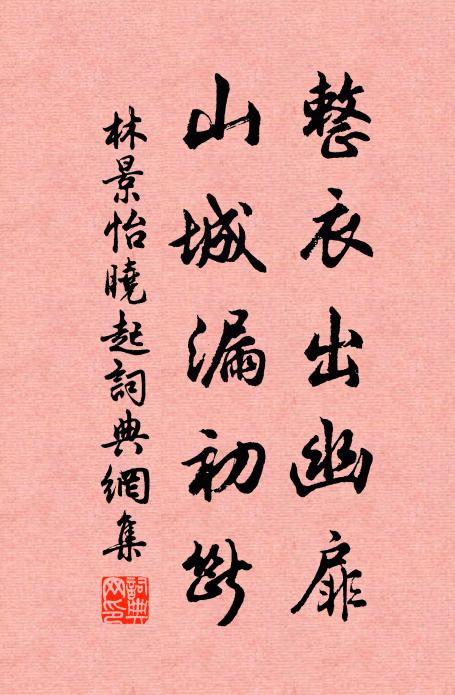 整衣出幽扉
山城漏初斷
林景怡曉起詞典網集
詞典
網印